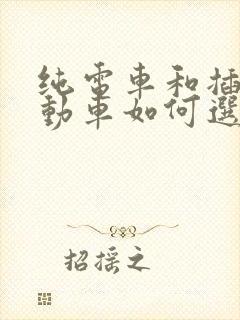 純電車和插
動車如何選
招摇之